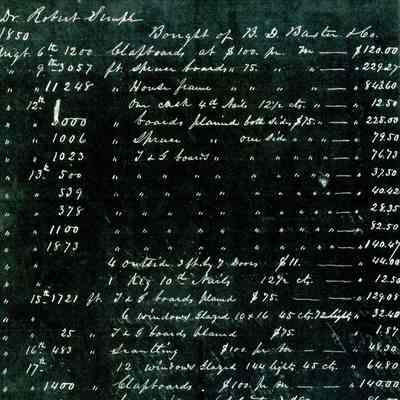 Dr. Robert Semple
1850 Bought of B. D. Baxter & Co.
Augt 6th 1200 Clapboards at $100. pr. M — $120.00
" 9th 3057 ft Spruce boards " 75. " " — " 229.27
" " 11248 " House frame " " " " — " 843.60
" 12th One cask 4d Nails 12½ cts. — " 12.50
" " 3000 " boards planed both sides $75. — " 225.00
" " 1006 " Spruce " one side " " — " 79.50
" " 1023 " T & G boards " " " " " — " 76.73
" 13th 500 " " " " " " " " — " 37.50
" " 539 " " " " " " " " — " 40.42
" " 378 " " " " " " " " — " 28.35
" " 1100 " " " " " " " " — " 82.50
" " 1873 " " " " " " " " — " 140.47
" " 4 outside 3 ft by 7 Doors $11. — " 44.00
" " 1 Keg 10th Nails 12½ cts. — " 12.50
" 15th 1721 ft T & G boards planed $75. — " 129.08
" " 6 windows Glazed 10 x 16 45 cts. 72 lights " 32.40
" " 25 " T & G boards planed $75 " 1.87
" 16th 483 " Scantling $100. pr. M — " 48.30
" 17th 12 windows Glazed 144 lights 45 cts. " 64.80
" " 1400 " Clapboards. $100. pr. M — " 140.00